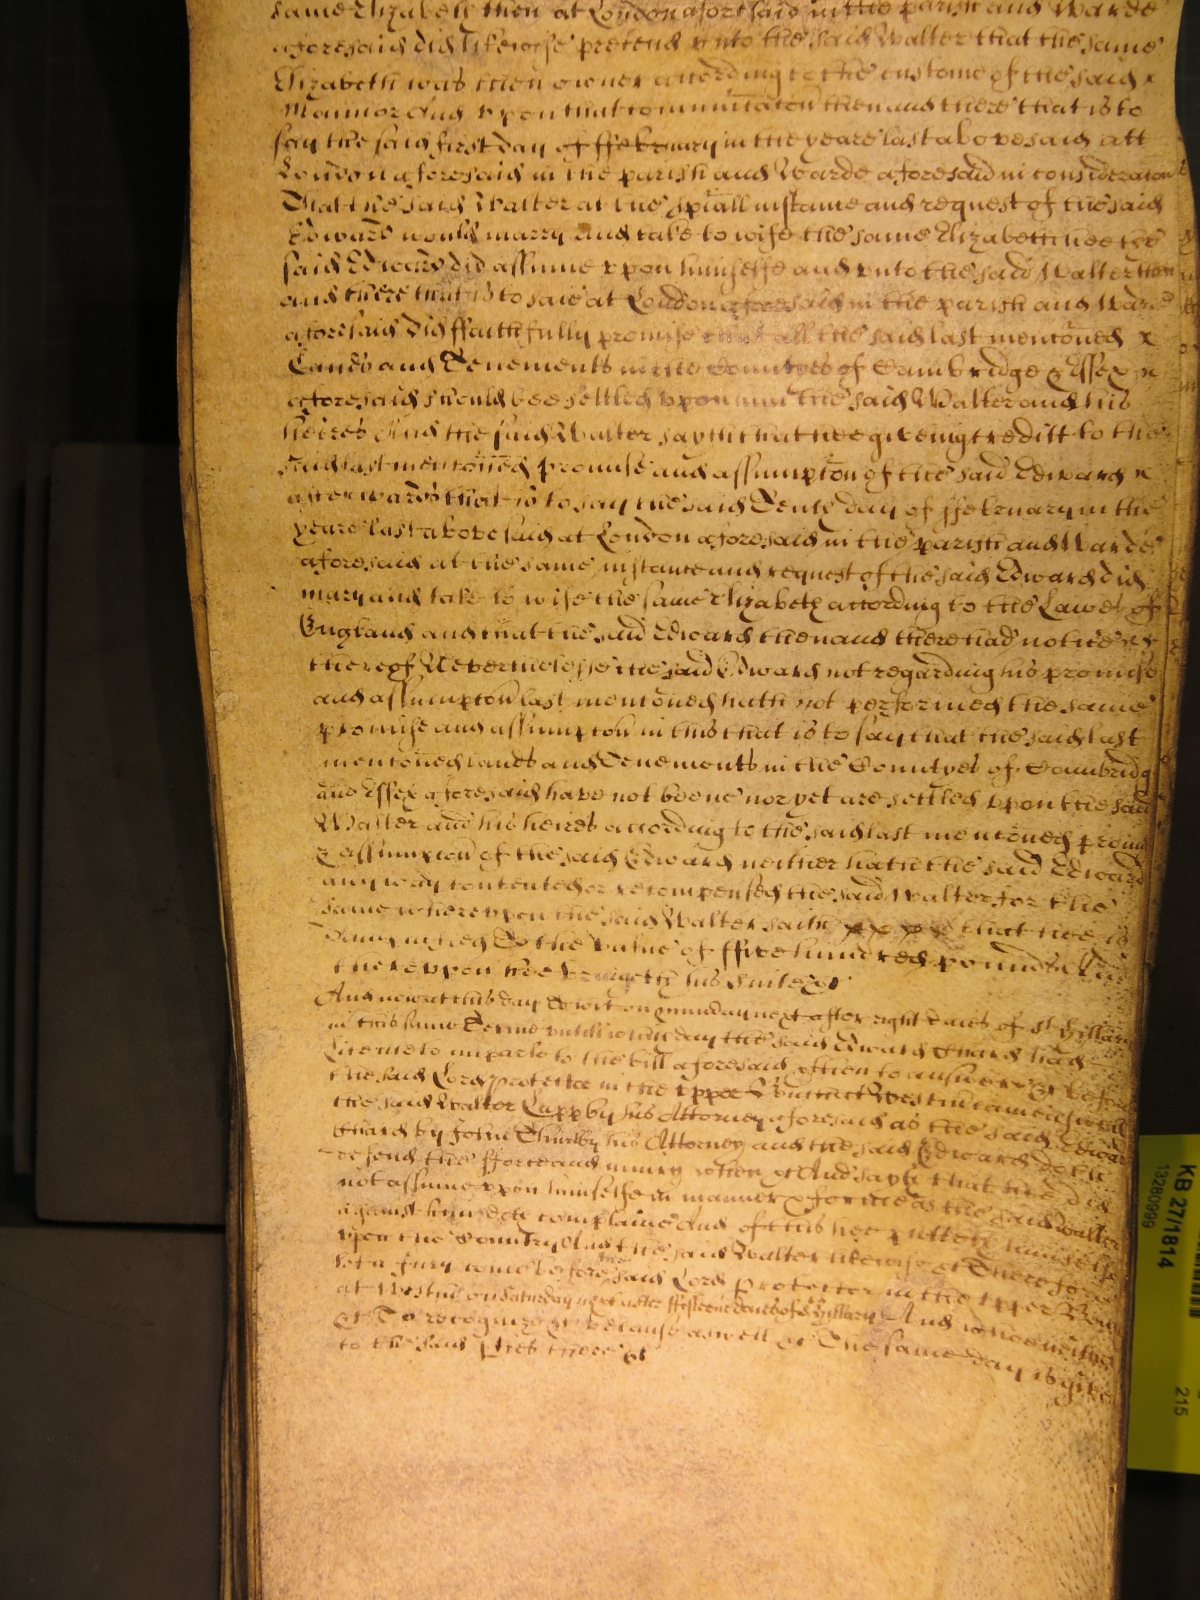 same Elizabeth then at London aforesaid in the parish and Warde
aforesaid did likewise pretend vnto the said Walter that the same
Elizabeth was then owner according to the custome of the said x
Mannor And vpon that comunicacon then and there that is to
say the said first day of ffebruary in the yeare last abovesaid att
London aforesaid in the parish and Warde aforesaid in consideracon
That the said Walter at the spiall instance and request of the said
Edward would marry and take to wife the same Elizabeth hee the
said Edward did assume vpon himselfe and vnto the said Walter then
and there that is to saie at London aforesaid in the parish and Warde
aforesaid did ffaithfully promise that all the said last mentoned x
Lands and Tenements in the Countyes of Cambridge & Essex x
aforesaid should bee settled vpon him the said Walter and his
heires And the said Walter sayth that hee giveing creditt to the
said last mentoned promise and assumpton of the said Edward x
afterwards that is to say the said Tenth day of ffebruary in the
yeare last above said at London aforesaid in the parish and Warde
aforesaid at the same instance and request of the said Edward did
marry and take to wife the same Elizabeth according to the Lawes of
England and that the said Edward then and there had notice
thereof Neverthelesse the said Edward not regarding his promise
and assumpton last mentoned hath not performed the same
promise and assumpton in this that is to say that the said last
mentoned lands and Tenements in the Countyes of Cambridg
and Essex aforesaid have not beene nor yet are settled vpon the said
Walter and his heires according to the said last mentoned promise
& assumpton of the said Edward neither hath the said Edward
any way contented or recompensed the said Walter for the
same wherevpon the said Walter saith that hee is
Damnified to the value of ffive hundred pounds And
therevpon hee bringeth his suite &c
And now at this day to wit on munday next after eight daies of St Hillary
in this same Terme vntill which day the said Edward had
licence to imparle to the bill aforesaid & then to answere &c before
the said Lord Protector in the vpper Bench at Westm came aswell
the said Walter Cupp by his Attorney aforesaid as the said Edward
by John Thursby his Attorney and the said Edward doth
defend the fforce and iniury when &c And sayth that hee did
not assume vpon himselfe in manner & forme as the said Walter
against him doth complaine And of this hee putteth himselfe
vpon the Country And the said Walter likewise &c Therefore
let a Jury come before the said Lord Protector in the vpper Bench
at Westm on saturday next after ffifteene daies of St Hillary And who neither
&c To recognize &c because aswell &c The same day is given
to the said pties there &c
KB 27/1814
13280999
215